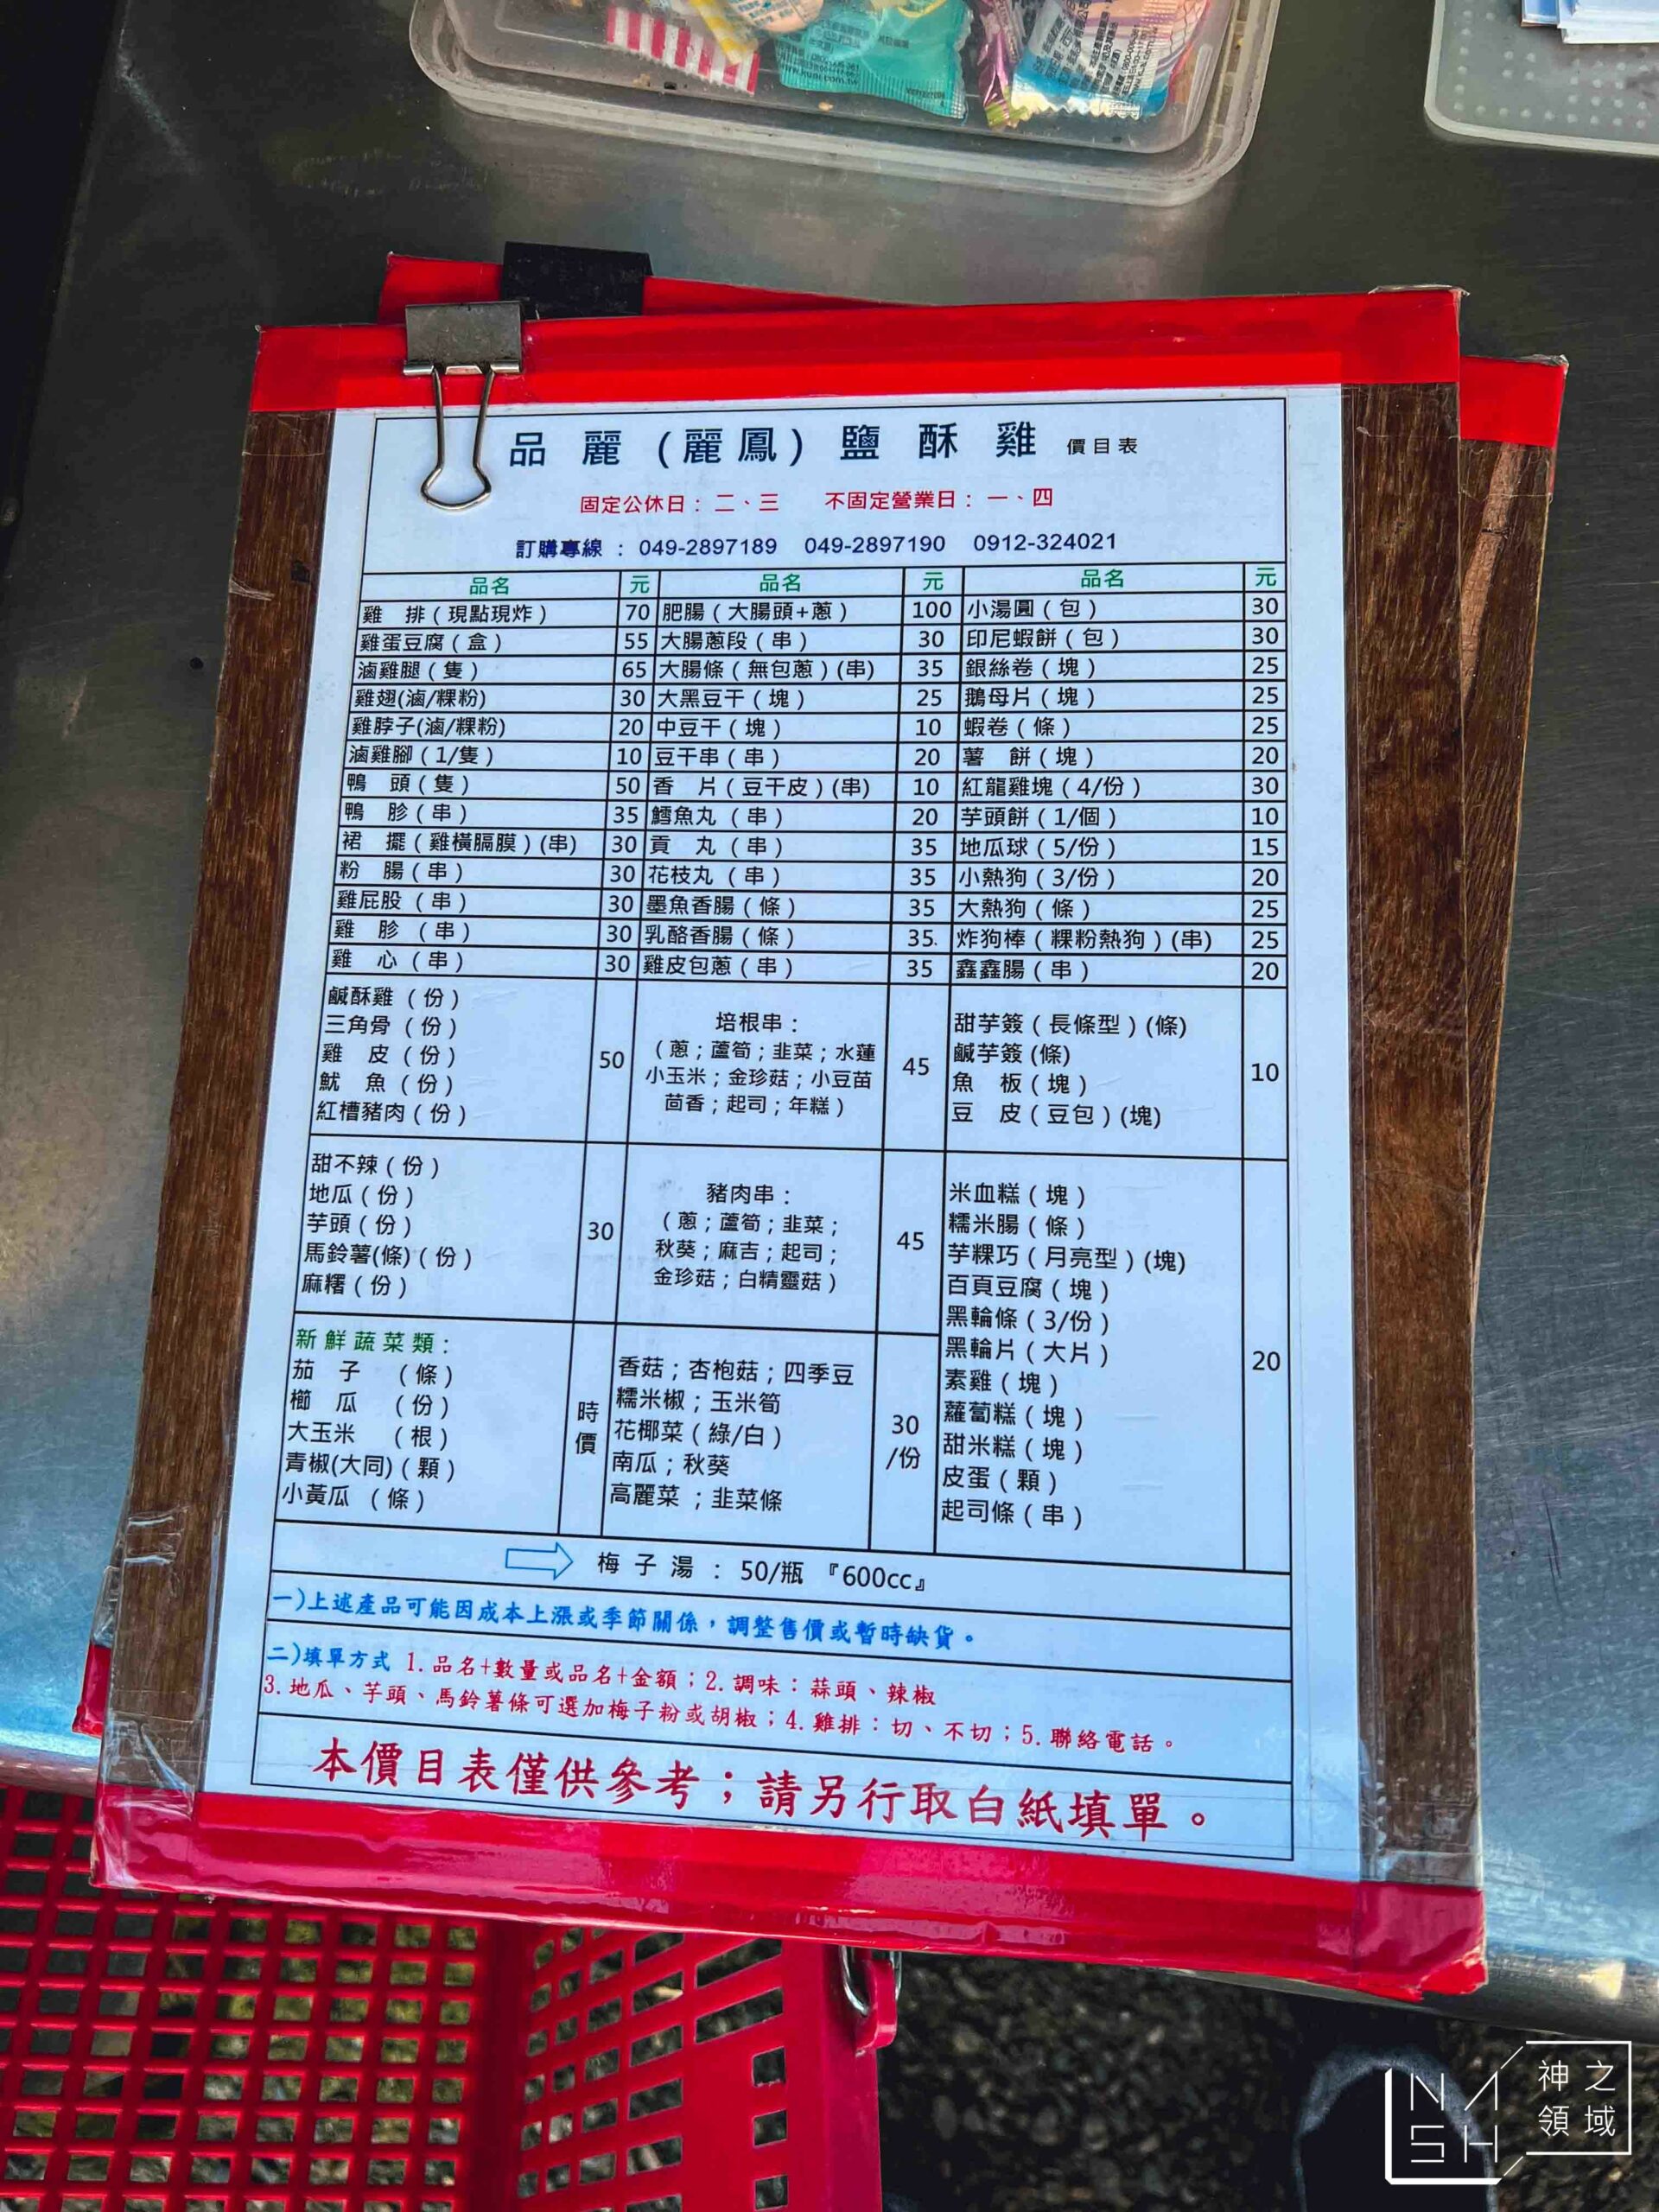 品 麗 (麗 鳳) 鹽 酥 雞 價目表
固定公休日：二、三 不固定營業日：一、四
訂購專線：049-2897189 049-2897190 0912-324021
品名 元 品名 元 品名 元
雞 排（現點現炸） 70 肥腸（大腸頭+蔥） 100 小湯圓（包） 30
雞蛋豆腐（盒） 55 大腸蔥段（串） 30 印尼蝦餅（包） 30
滷雞腿（隻） 65 大腸條（無包蔥）(串) 35 銀絲卷（塊） 25
雞翅(滷/粿粉) 30 大黑豆干（塊） 25 鵝母片（塊） 25
雞脖子(滷/粿粉) 20 中豆干（塊） 10 蝦卷（條） 25
滷雞腳（1/隻） 10 豆干串（串） 20 薯 餅（塊） 20
鴨 頭（隻） 50 香 片（豆干皮）(串) 10 紅龍雞塊（4/份） 30
鴨 胗（串） 35 鱈魚丸（串） 20 芋頭餅（1/個） 10
裙 擺（雞橫膈膜）(串) 30 貢 丸（串） 35 地瓜球（5/份） 15
粉 腸（串） 30 花枝丸（串） 35 小熱狗（3/份） 20
雞屁股（串） 30 墨魚香腸（條） 35 大熱狗（條） 25
雞 胗（串） 30 乳酪香腸（條） 35. 炸狗棒（粿粉熱狗）(串) 25
雞 心（串） 30 雞皮包蔥（串） 35 鑫鑫腸（串） 20
鹹酥雞（份）
三角骨（份）
雞 皮（份）
魷 魚（份）
紅槽豬肉（份）
50
培根串：
（蔥；蘆筍；韭菜；水蓮
小玉米；金珍菇；小豆苗
茴香；起司；年糕）
45
甜芋簽（長條型）(條)
鹹芋簽 (條)
魚 板（塊）
豆 皮（豆包）(塊)
10
甜不辣（份）
地瓜（份）
芋頭（份）
馬鈴薯(條)（份）
麻糬（份）
30
豬肉串：
（蔥；蘆筍；韭菜；
秋葵；麻吉；起司；
金珍菇；白精靈菇）
45
米血糕（塊）
糯米腸（條）
芋粿巧（月亮型）(塊)
百頁豆腐（塊）
黑輪條（3/份）
黑輪片（大片）
素雞（塊）
蘿蔔糕（塊）
甜米糕（塊）
皮蛋（顆）
起司條（串）
20
新鮮蔬菜類：
茄 子 （條）
櫛 瓜 （份）
大玉米 （根）
青椒(大同)（顆）
小黃瓜 （條）
時
價
香菇；杏枹菇；四季豆
糯米椒；玉米筍
花椰菜（綠/白）
南瓜；秋葵
高麗菜 ；韭菜條
30
/份
梅 子 湯 ： 50/瓶 『600cc』
一)上述產品可能因成本上漲或季節關係，調整售價或暫時缺貨。
二)填單方式 1.品名+數量或品名+金額；2.調味：蒜頭、辣椒
3.地瓜、芋頭、馬鈴薯條可選加梅子粉或胡椒；4.雞排：切、不切；5.聯絡電話。
本價目表僅供參考；請另行取白紙填單。
NASH
神之
領域